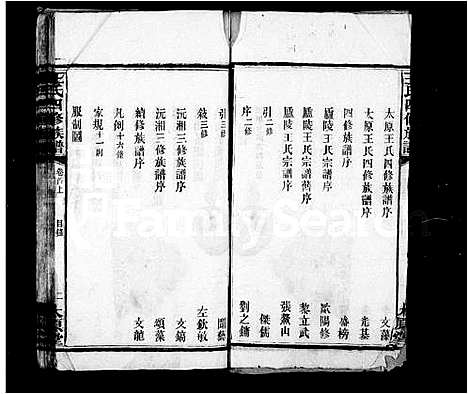 王氏四修族譜
太原王氏四修族譜序 文藻
太原王氏四修族譜序 光基
四修族譜序 盛榜
廬陵王氏宗譜序 歐陽修
廬陵王氏宗譜序 黎立武
廬陵王氏宗譜舊序 張巖山
引二修 傑儒
序二修 劉之鏞
引三修 闓藝
敘三修 左欽敏
沅湘三修族譜序 文鎬
沅湘三修族譜序 頌藻
續修族譜序 文龍
凡例十六條
家規十一則
服制圖
王氏四修族譜 卷首上 目錄 一
FamilySearch